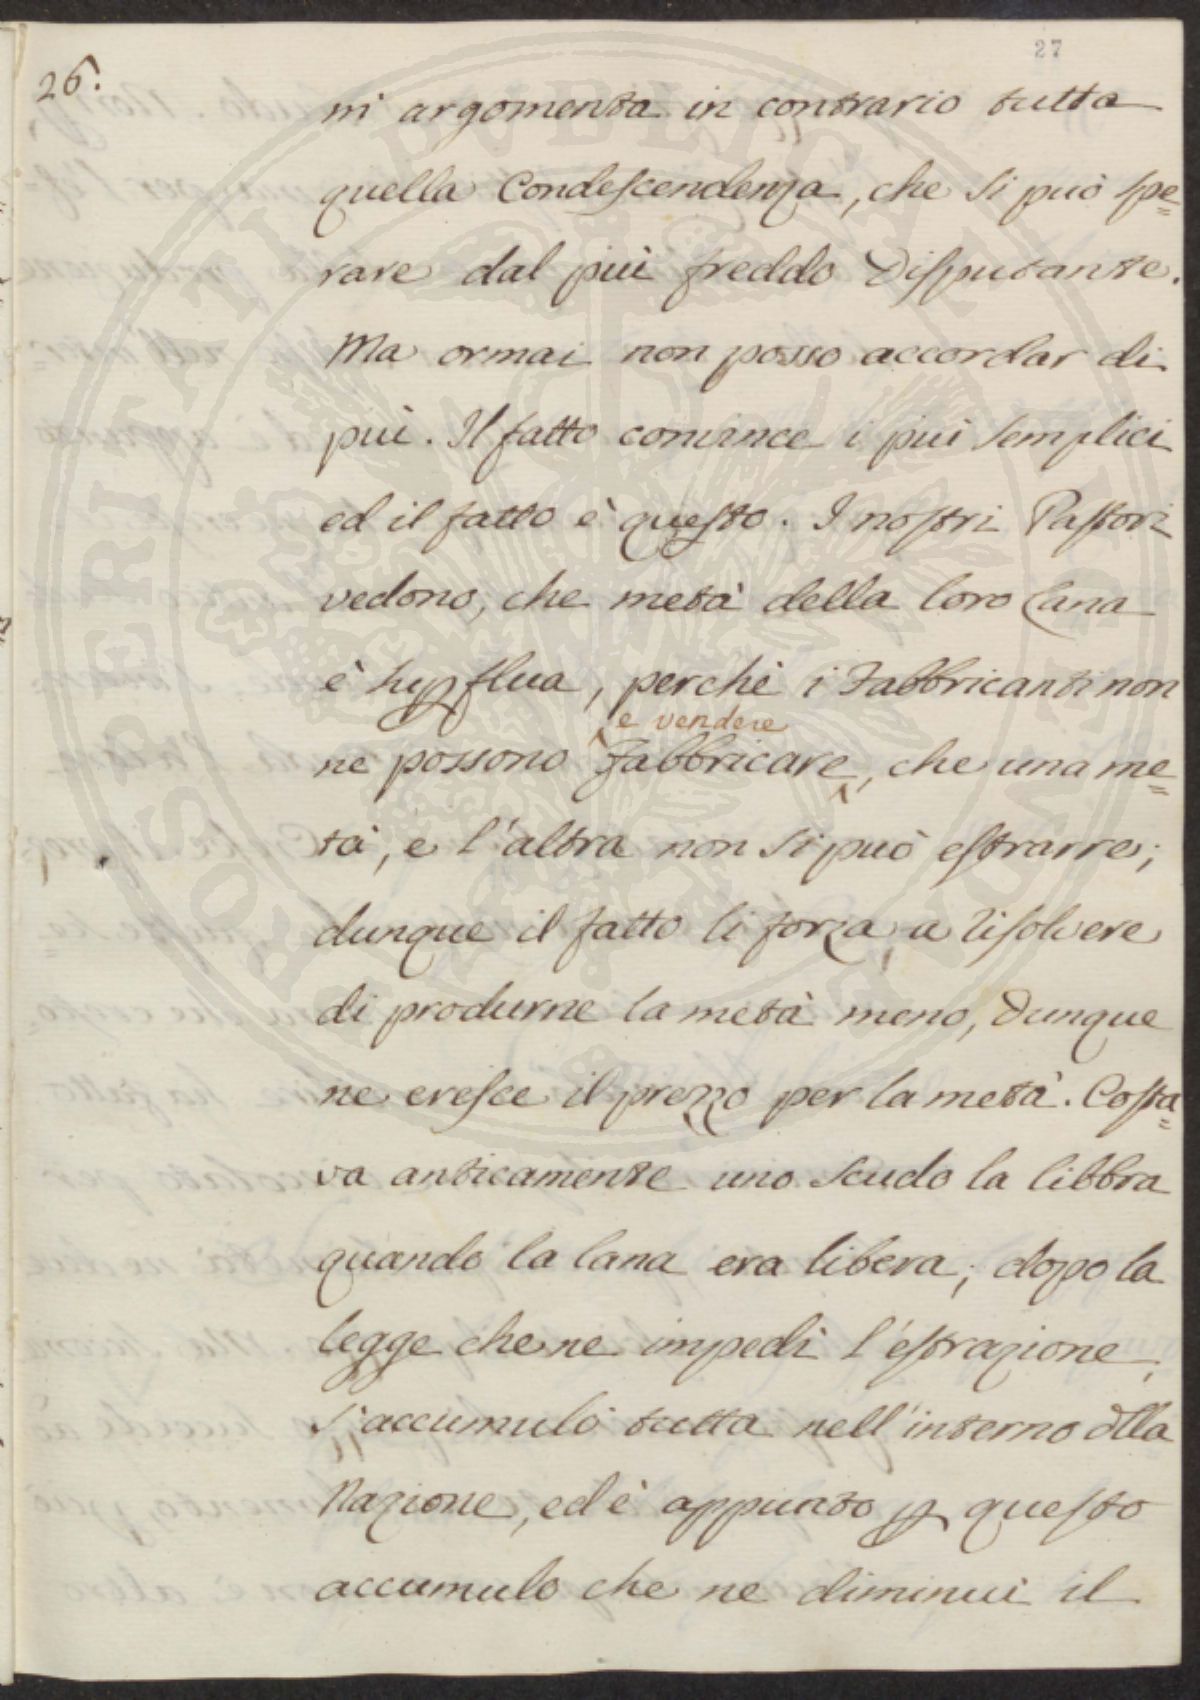 27
26.
ni argomenta in contrario tutta
quella Condescendenza, che si può spe=
rare dal più freddo Disputante.
Ma ormai non posso accordar di
più. Il fatto convince i più semplici
ed il fatto è questo. I nostri Pastori
vedono, che metà della loro Lana
è supflua, perchè i Fabbricanti non
e vendere
ne possono fabbricare, che una me=
tà, e l'altra non si può estrarre;
dunque il fatto li forza a risolvere
di produrne la metà meno, Dunque
ne cresce il prezzo per la metà. Costa=
va anticamente uno scudo la libbra
quando la lana era libera; dopo la
legge che ne impedì l'estrazione,
s'accumulò tutta nell'interno dlla
Nazione, ed è appunto p questo
accumulo che ne diminuì il
PROSPERITATI PUBLICAE